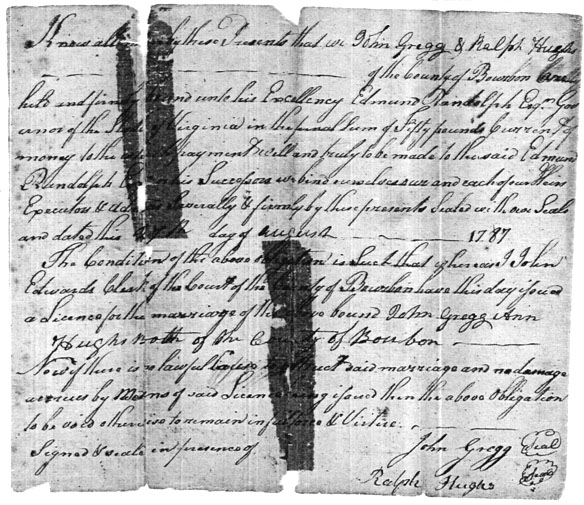 Know all by these Presents that we John Gregg & Ralph Hughs
of the County of Bourbon are
held and firmly unto his Excellency Edmund Randolph Esqr. Gov
ernor of the State of Virginia in the penal Sum of Fifty pounds Current
money to the payment well and truly to be made to the said Edmund
Randolph his Successors we bind ourselves our and each of our Heirs
Executors & Severally & firmly by these presents Sealed with our Seals
and dated this day of august 1787
The Condition of the above is Such that whereas I John
Edwards Clerk of the Court of the County of Bourbon have this day issued
a Licence for the marriage of the bound John Gregg Ann
Hughs both of the County of Bourbon
Now if there is no lawful Cause said marriage and no damage
accrues by Means of said Licence issued then the above Obligation
to be void otherwise to remain in force & Virtue.
Signed & seald in presence of
John Gregg Seal
Ralph Hughs Seal